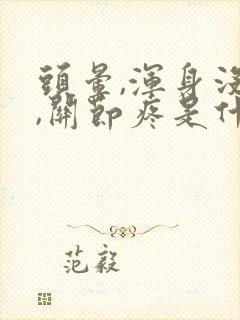 頭暈,渾身沒
,關節疼是什
范毅